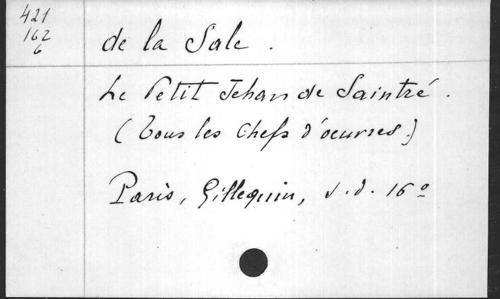 421
162
6
de la Sale.
Le Petit Jehan de Saintré.
(Tous les Chefs d'oeuvres.)
Paris, Gillequin, s.d. 16º